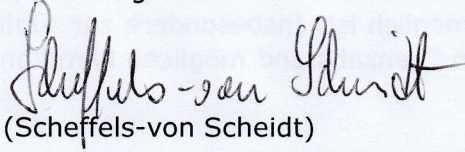 Scheffels-von Scheidt
(Scheffels-von Scheidt)